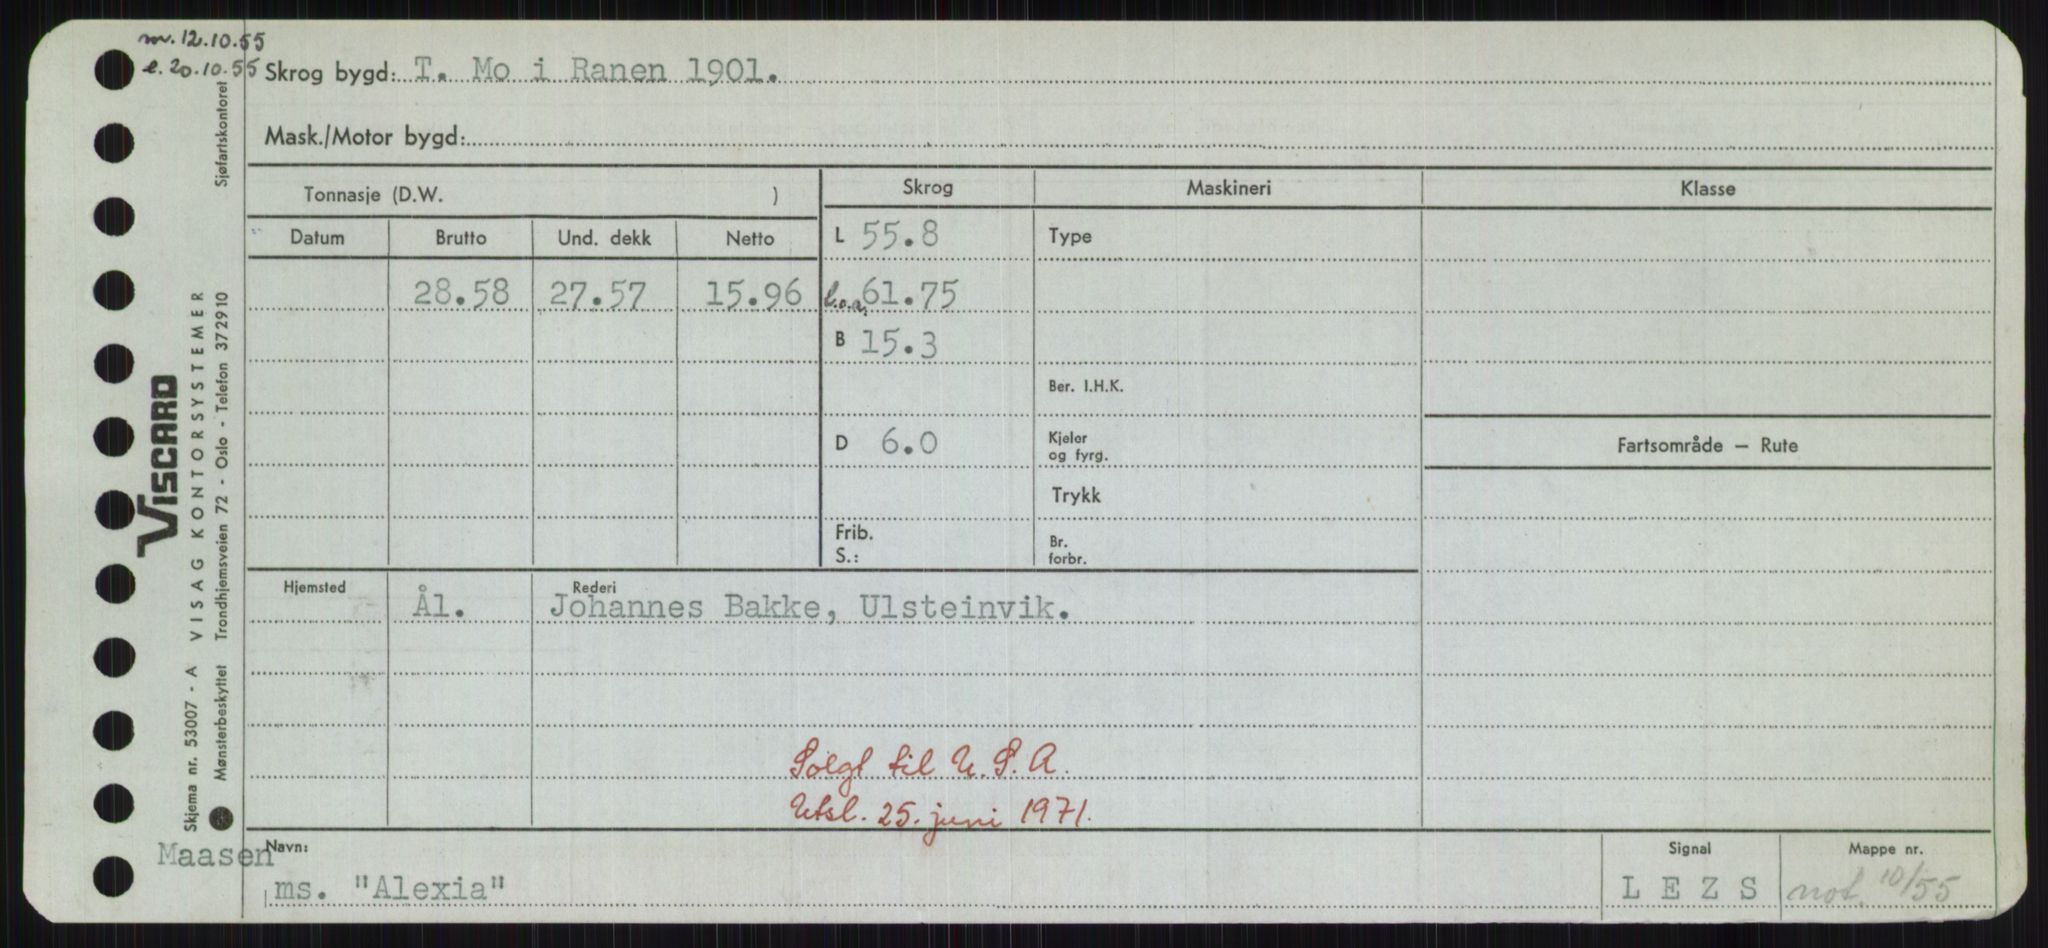 m. 12.10.55
e. 20.10.55
Skrog bygd: T. Mo i Ranen 1901.
Mask./Motor bygd:
Tonnasje (D.W. )
Skrog Maskineri Klasse
Datum Brutto Und. dekk Netto
L 55.8
Type
28.58 27.57 15.96
l.o.a. 61.75
B 15.3
Ber. I.H.K.
D 6.0
Kjeler
og fyrg.
Fartsområde — Rute
Trykk
Frib.
S.:
Br.
forbr.
Hjemsted Rederi
Ål. Johannes Bakke, Ulsteinvik.
Solgt til U.S.A.
Utsl. 25. juni 1971.
Navn: Signal Mappe nr.
Maasen
ms. "Alexia" LEZS not. 10/55
Skjema nr. 53007 - A VISAG KONTORSYSTEMER
VISCARD
Mønsterbeskyttet Trondhjemsveien 72 - Oslo - Telefon 372910 Sjøfartskontoret